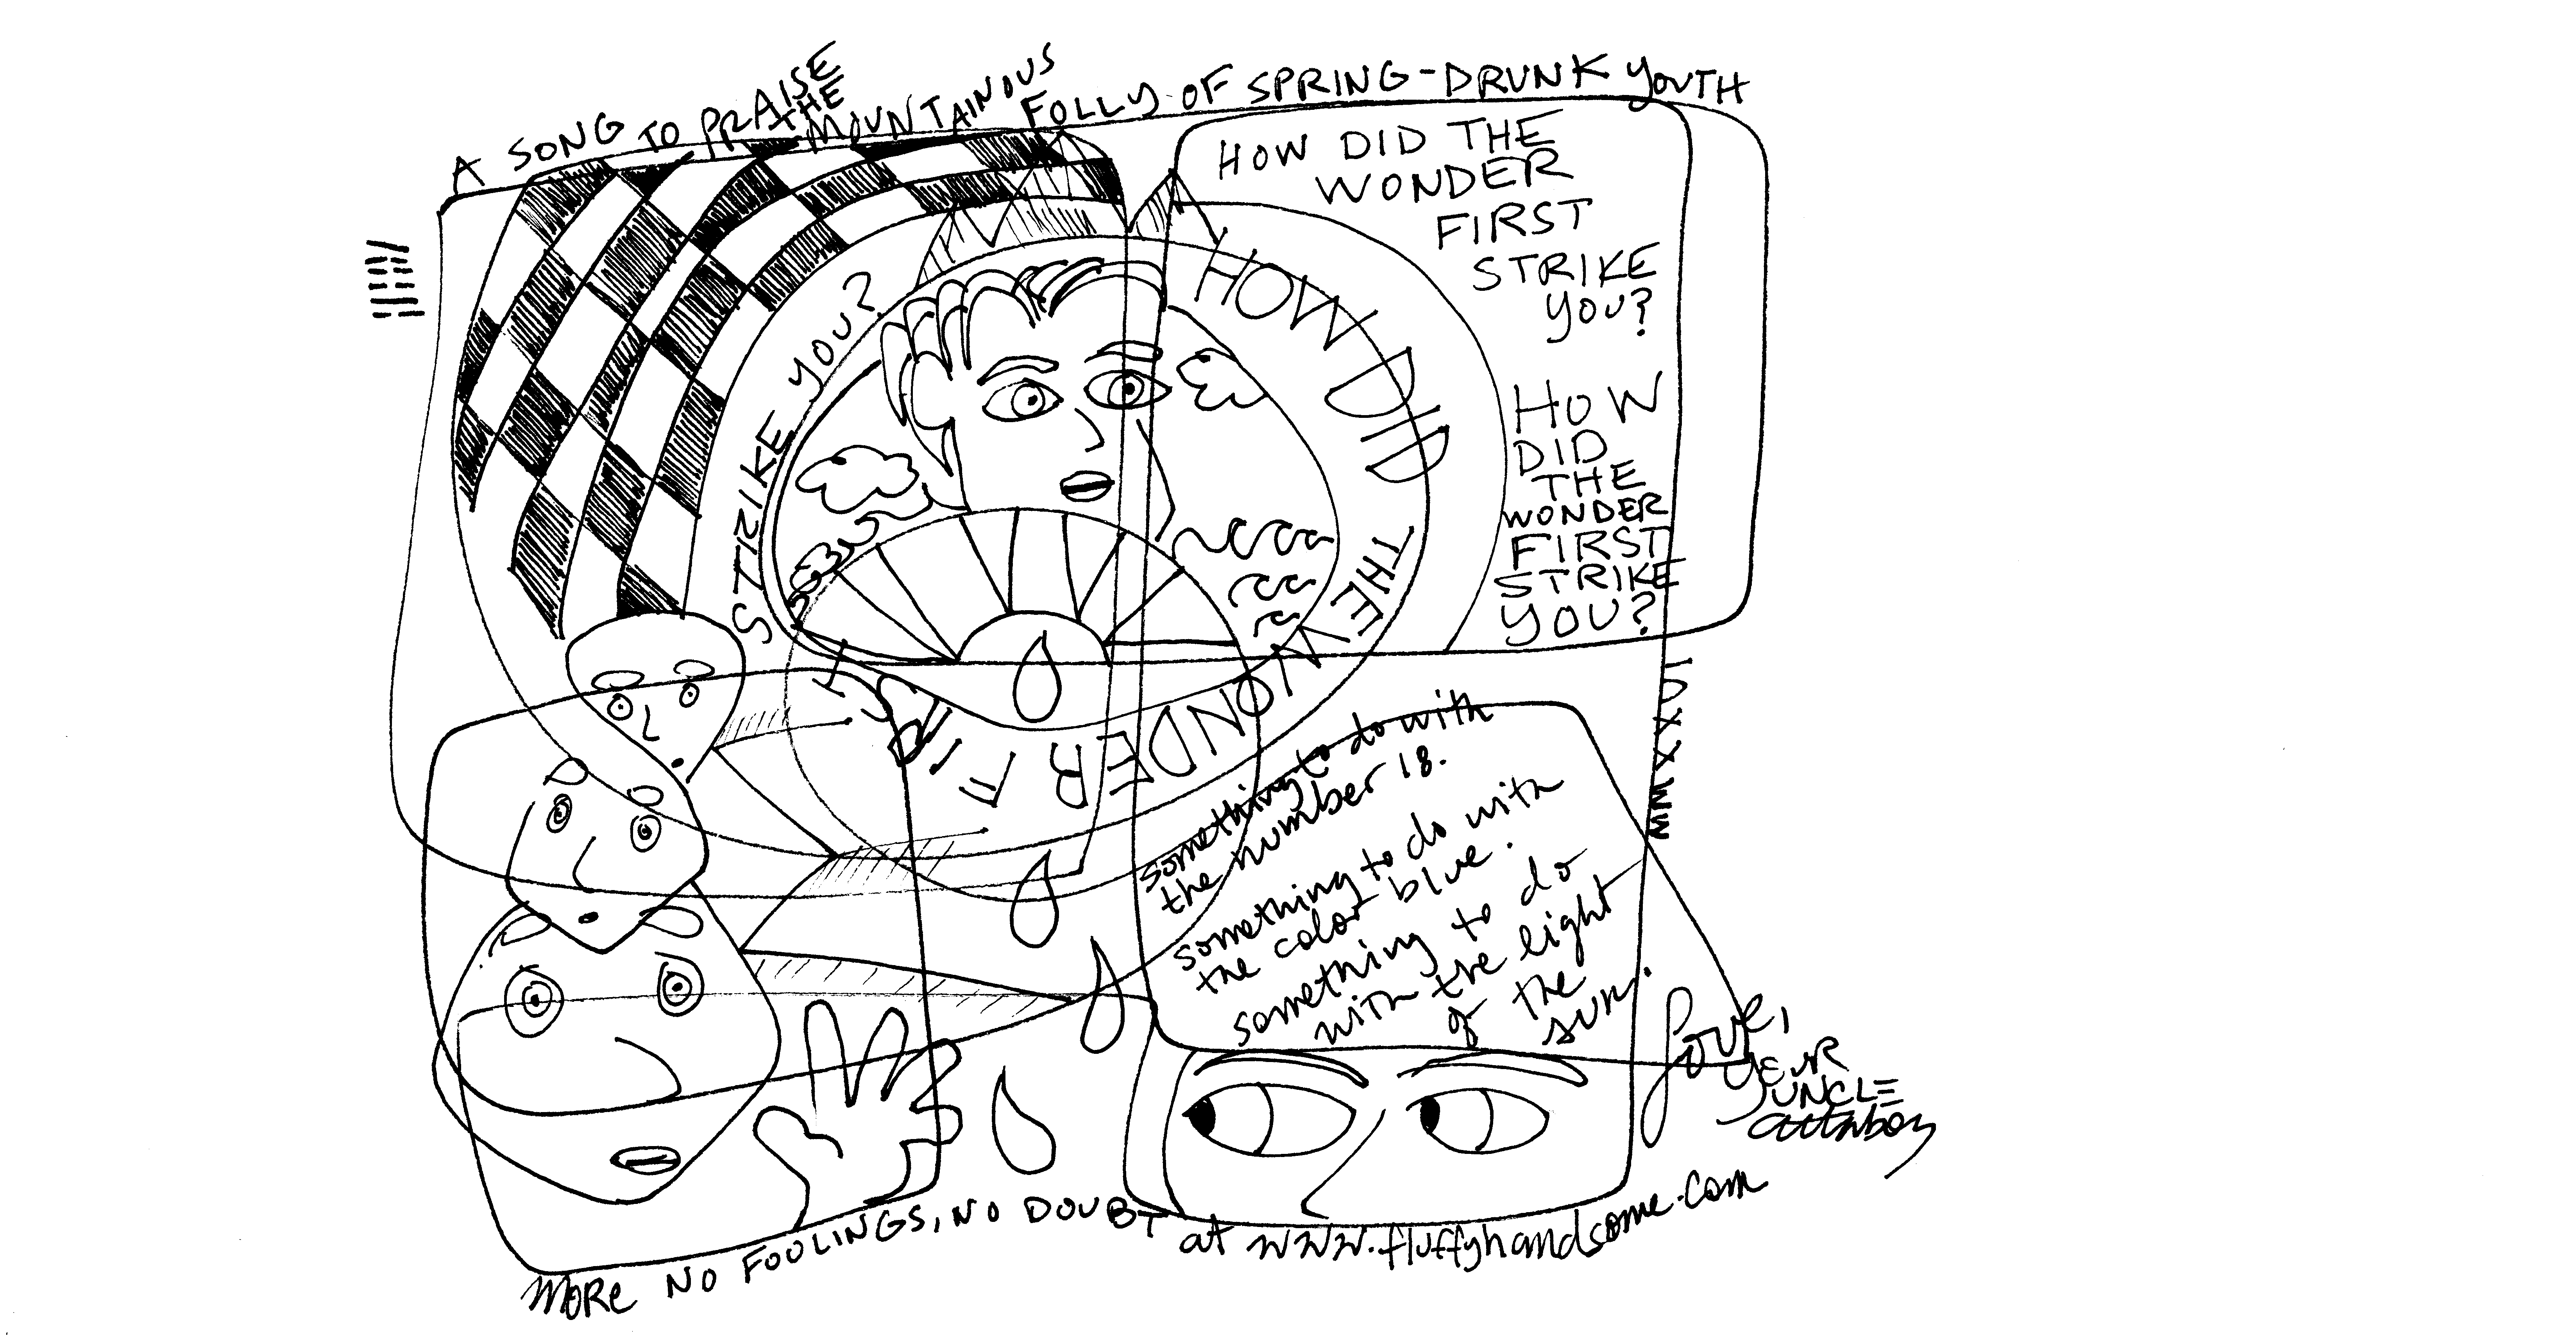 A SONG TO PRAISE THE MOUNTAINOUS FOLLY OF SPRING-DRUNK YOUTH
HOW DID THE
WONDER
FIRST
STRIKE
YOU?
HOW
DID
THE
WONDER
FIRST
STRIKE
YOU?
HOW DID THE WONDER FIRST STRIKE YOU?
something to do with
the number 18.
something to do with
the color blue.
something to do
with the light
of the
sun.
Love,
YOUR
UNCLE
attaboy
MORE NO FOOLINGS, NO DOUBT at www.fluffyhandsome.com